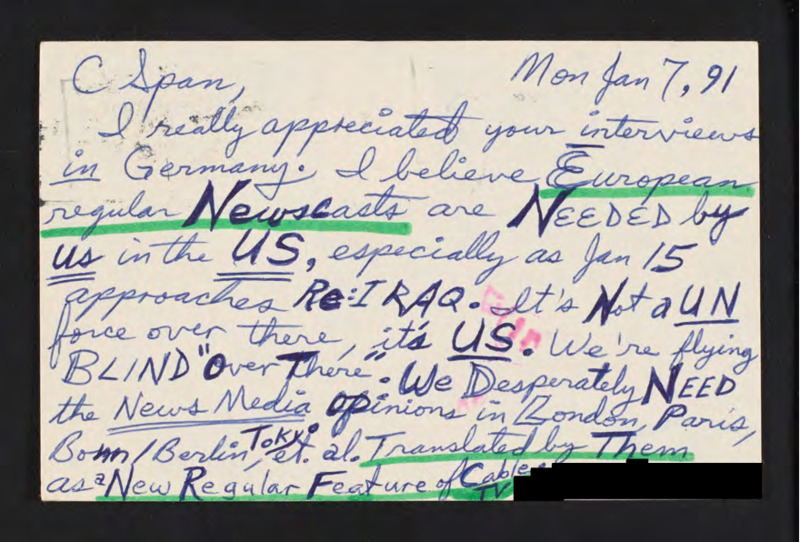 C Span, Mon Jan 7, 91
I really appreciated your interviews
in Germany. I believe European
regular Newscasts are NEEDED by
us in the US, especially as Jan 15
approaches Re: IRAQ. It's Not a UN
force over there, it's US. We're flying
BLIND "Over There". We Desperately NEED
the News Media Opinions in London, Paris,
Bonn/Berlin, Tokyo et. al. Translated by Them
as a New Regular Feature of Cable
TV